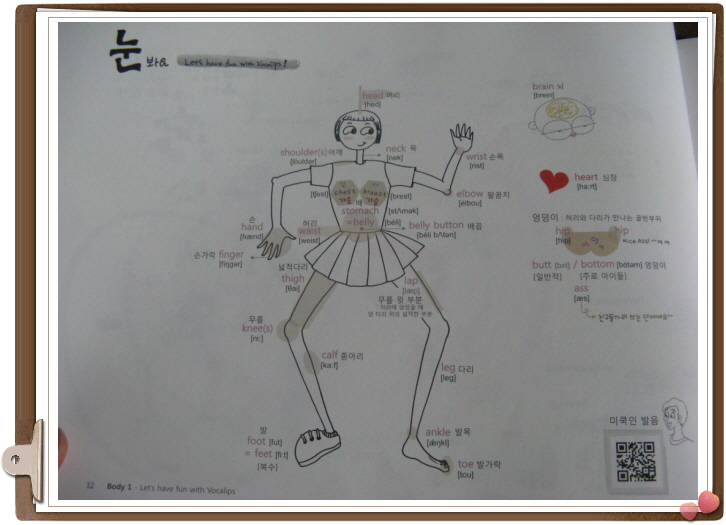 눈 봐요 Let's have fun with Vocalips!
head 머리
[hed]
brain 뇌
[brein]
shoulder(s) 어깨
[ʃouldər]
neck 목
[nek]
wrist 손목
[rist]
heart 심장
[hɑːrt]
[tʃest]
chest
가슴
breast
가슴
[brest]
elbow 팔꿈치
[elbou]
배
stomach
[stʌmək]
=belly
[béli]
손
hand
[hænd]
허리
waist
[weist]
belly button 배꼽
[béli bʌtən]
엉덩이 : 허리와 다리가 만나는 골반부위
hip
[hip]
hip
Nice Ass!
손가락 finger
[fiŋgər]
넓적다리
thigh
[θai]
butt [bʌt] / bottom [bɑtəm] 엉덩이
[일반적] [주로 아이들]
lap
[læp]
무릎 윗 부분
: 의자에 앉았을 때
양 다리 위의 넓적한 부분
ass
[æs]
무릎
knee(s)
[niː]
calf 종아리
[kæːf]
leg 다리
[leg]
미국인 발음
발
foot [fut]
= feet [fiːt]
[복수]
ankle 발목
[æŋkl]
toe 발가락
[tou]
32 Body 1 - Let's have fun with Vocalips